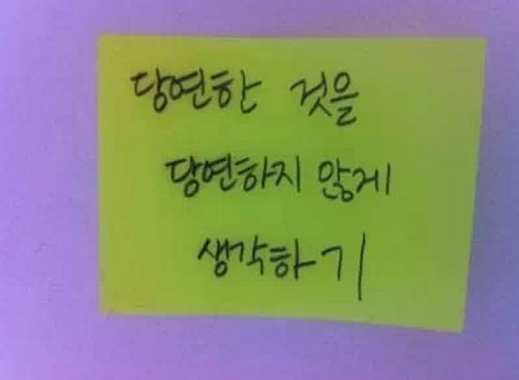 당연한 것을
당연하지 않게
생각하기